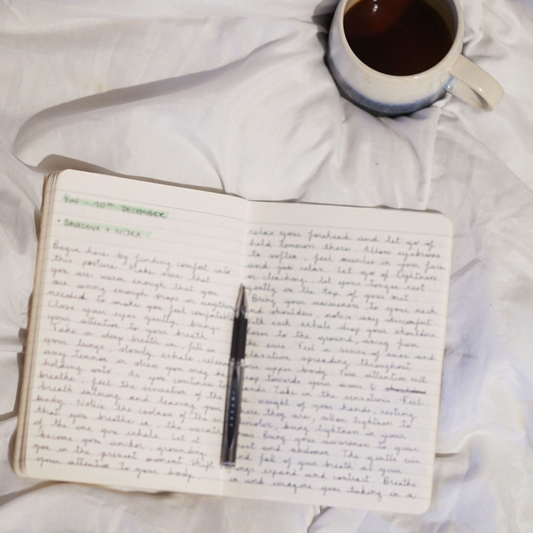 YIN - 10TH DECEMBER
• SAVASANA + NIDRA
Begin here by finding comfort into
this posture. Make sure that
you are warm enough that you
are using enough props or anything
needed to make you feel completely
Close your eyes gently, bring
your attention to your breath.
Take a deep breath in, fill in
your lungs slowly, exhale, release
any tension or stress you may be
holding onto. As you continue to
breathe, feel the sensation of the
breath entering and leaving your
body. Notice the coolness of the
that you breathe in, the warmth
of the one you exhale. Let it
become your anchor, grounding
you in the present moment. Shift
your attention to your body
relax your forehead and let go of
held tension there. Allow eyebrows
to soften, feel muscles in your face
and jaw relax. Let go of tightness
or clenching, let your tongue rest
gently on the top of your
Bring your awareness to your neck
and shoulders, notice any discomfort.
with each exhale drop your shoulders
down to the ground, away from
the ears. Feel a sense of ease and
relaxation spreading throughout
your upper body. Your attention will
drop towards your arms &
hands. Take in the sensations. Feel
the weight of your hands, resting
where they are, allow tightness to
dissolve, bring lightness in your
arms. Bring your awareness to your
chest and abdomen. The gentle rise
and fall of your breath as your
lungs expand and contract. Breathe
in and imagine you taking in a